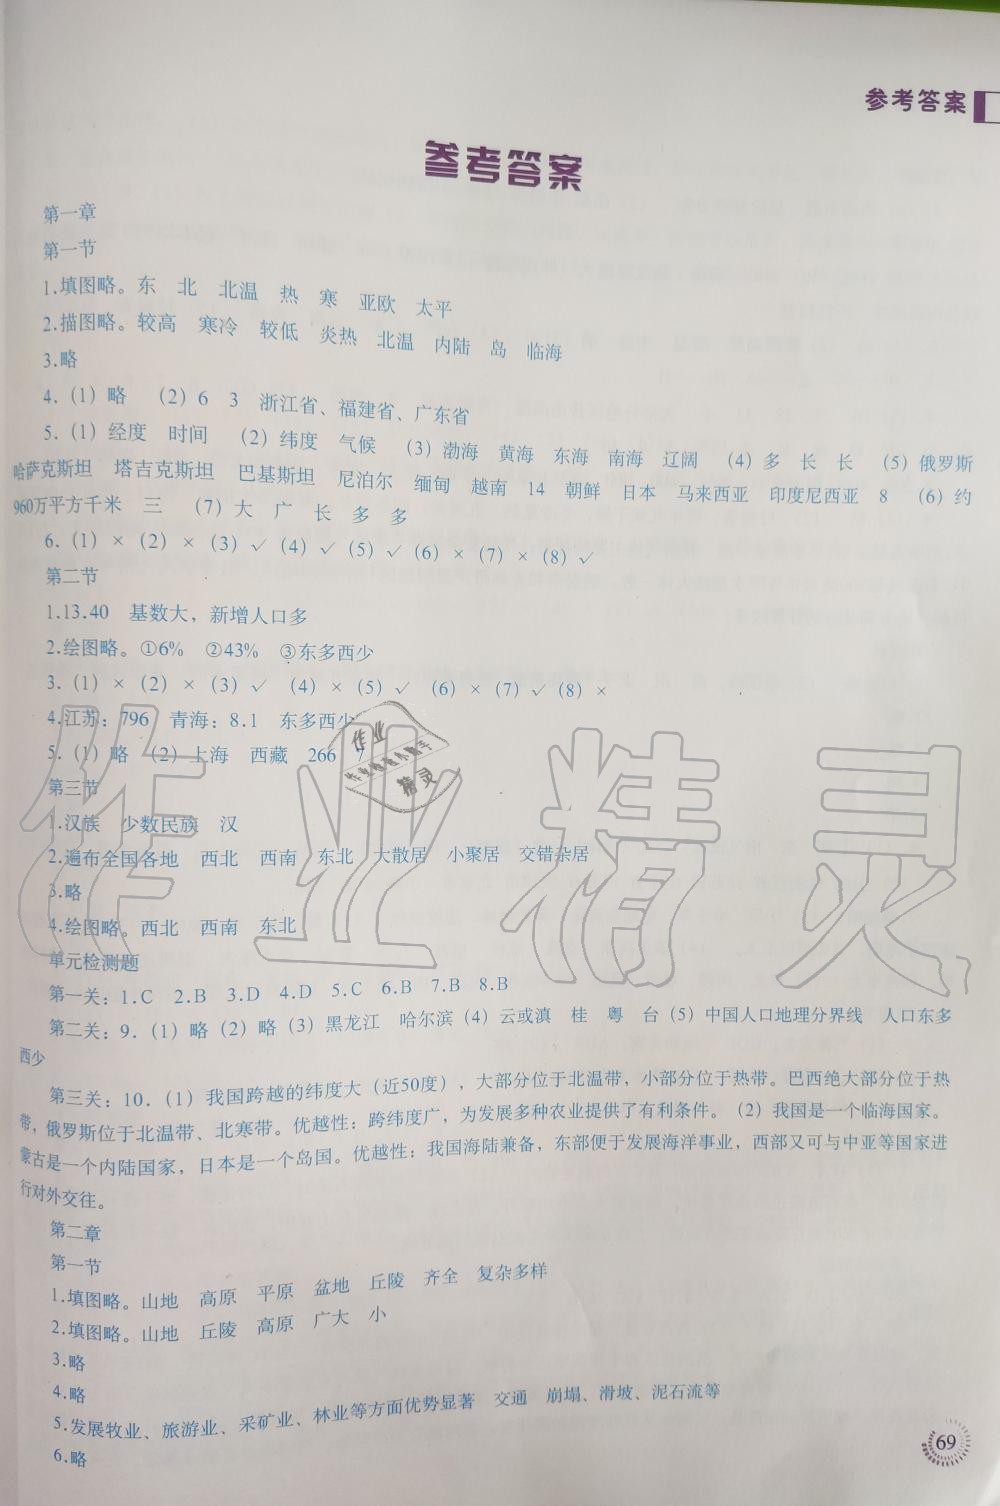 参考答案
参考答案
第一章
第一节
1.填图略。东 北 北温 热 寒 亚欧 太平
2.描图略。较高 寒冷 较低 炎热 北温 内陆 岛 临海
3.略
4.(1)略 (2)6 3 浙江省、福建省、广东省
5.(1)经度 时间 (2)纬度 气候 (3)渤海 黄海 东海 南海 辽阔 (4)多 长 长 (5)俄罗斯
哈萨克斯坦 塔吉克斯坦 巴基斯坦 尼泊尔 缅甸 越南 14 朝鲜 日本 马来西亚 印度尼西亚 8 (6)约
960万平方千米 三 (7)大 广 长 多 多
6.(1)× (2)× (3)✓ (4)✓ (5)✓ (6)× (7)× (8)✓
第二节
1.13.40 基数大，新增人口多
2.绘图略。①6% ②43% ③东多西少
3.(1)× (2)× (3)✓ (4)× (5)✓ (6)× (7)✓ (8)×
4.江苏：796 青海：8.1 东多西少
5.(1)略 (2)上海 西藏 266 7
第三节
1.汉族 少数民族 汉
2.遍布全国各地 西北 西南 东北 大散居 小聚居 交错杂居
3.略
4.绘图略。西北 西南 东北
单元检测题
第一关：1.C 2.B 3.D 4.D 5.C 6.B 7.B 8.B
第二关：9.(1)略(2)略(3)黑龙江 哈尔滨(4)云或滇 桂 粤 台(5)中国人口地理分界线 人口东多
西少
第三关：10.(1)我国跨越的纬度大（近50度），大部分位于北温带，小部分位于热带。巴西绝大部分位于热
带，俄罗斯位于北温带、北寒带。优越性：跨纬度广，为发展多种农业提供了有利条件。(2)我国是一个临海国家。
蒙古是一个内陆国家，日本是一个岛国。优越性：我国海陆兼备，东部便于发展海洋事业，西部又可与中亚等国家进
行对外交往。
第二章
第一节
1.填图略。山地 高原 平原 盆地 丘陵 齐全 复杂多样
2.填图略。山地 丘陵 高原 广大 小
3.略
4.略
5.发展牧业、旅游业、采矿业、林业等方面优势显著 交通 崩塌、滑坡、泥石流等
6.略
69
作业精灵
作业
精灵